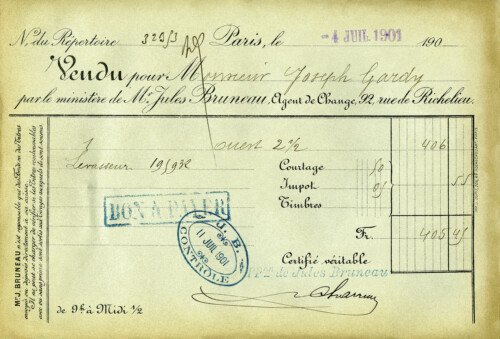 N.º du Répertoire 329/3 Paris, le -4 JUIL. 1901 190
Vendu pour Monsieur Joseph Gardy
par le ministère de Mr. Jules Bruneau, Agent de Change, 92, rue de Richelieu.
1 Ouest 2 ½ 406
Levasseur 195932 Courtage 50
Impot 05 55
Timbres
BON A PAYER
J. B.
11 JUIL 1901
CONTRÔLE
Fr. 405 45
Certifié véritable
PPon de Jules Bruneau
de 9h à Midi ½
Mr J. BRUNEAU n'est responsable que des